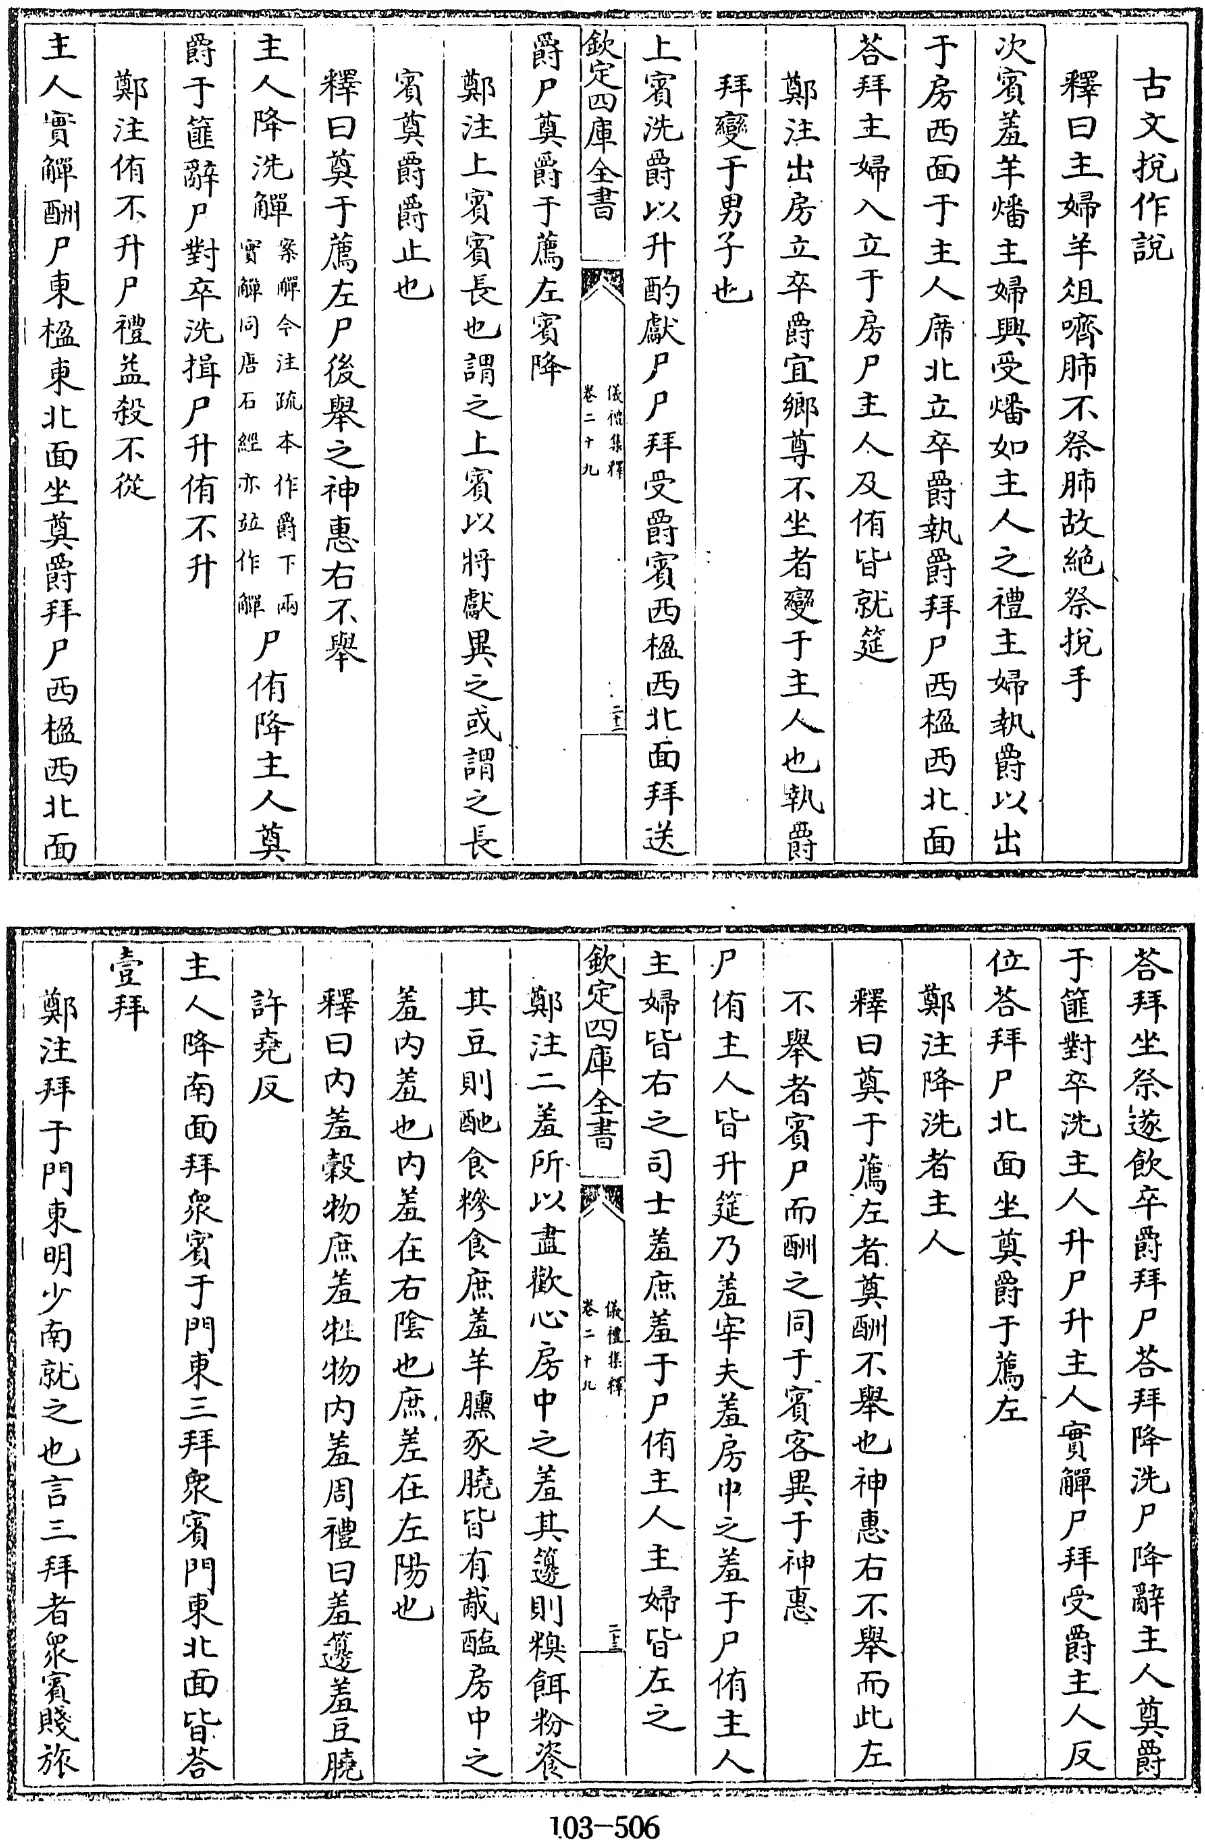 古文挩作說
釋曰主婦羊俎嚌肺不祭肺故絶祭挩手
次賓羞羊燔主婦興受燔如主人之禮主婦執爵以出
于房西面于主人席北立卒爵執爵拜尸西楹西北面
荅拜主婦入立于房尸主人及侑皆就筵
鄭注出房立卒爵宜鄉尊不坐者變于主人也執爵
拜變于男子也
上賓洗爵以升酌獻尸尸拜受爵賓西楹西北面拜送
欽定四庫全書
儀禮集釋
卷二十九
二十二
爵尸奠爵于薦左賓降
鄭注上賓賓長也謂之上賓以將獻異之或謂之長
賓奠爵爵止也
釋曰奠于薦左尸後舉之神惠右不舉
主人降洗觶案觶今注疏本作爵下兩實觶同唐石經亦竝作觶尸侑降主人奠
爵于篚辭尸對卒洗揖尸升侑不升
鄭注侑不升尸禮益殺不從
主人實觶酬尸東楹東北面坐奠爵拜尸西楹西北面
荅拜坐祭遂飲卒爵拜尸荅拜降洗尸降辭主人奠爵
于篚對卒洗主人升尸升主人實觶尸拜受爵主人反
位荅拜尸北面坐奠爵于薦左
鄭注降洗者主人
釋曰奠于薦左者奠酬不舉也神惠右不舉而此左
不舉者賓尸而酬之同于賓客異于神惠
尸侑主人皆升筵乃羞宰夫羞房中之羞于尸侑主人
主婦皆右之司士羞庶羞于尸侑主人主婦皆左之
欽定四庫全書
儀禮集釋
卷二十九
二十三
鄭注二羞所以盡歡心房中之羞其籩則糗餌粉餈
其豆則酏食糝食庶羞羊臐豕膮皆有胾醢房中之
羞内羞也内羞在右陰也庶羞在左陽也
釋曰内羞穀物庶羞牲物内羞周禮曰羞籩羞豆膮
許堯反
主人降南面拜衆賓于門東三拜衆賓門東北面皆荅
壹拜
鄭注拜于門東明少南就之也言三拜者衆賓賤旅
103-506